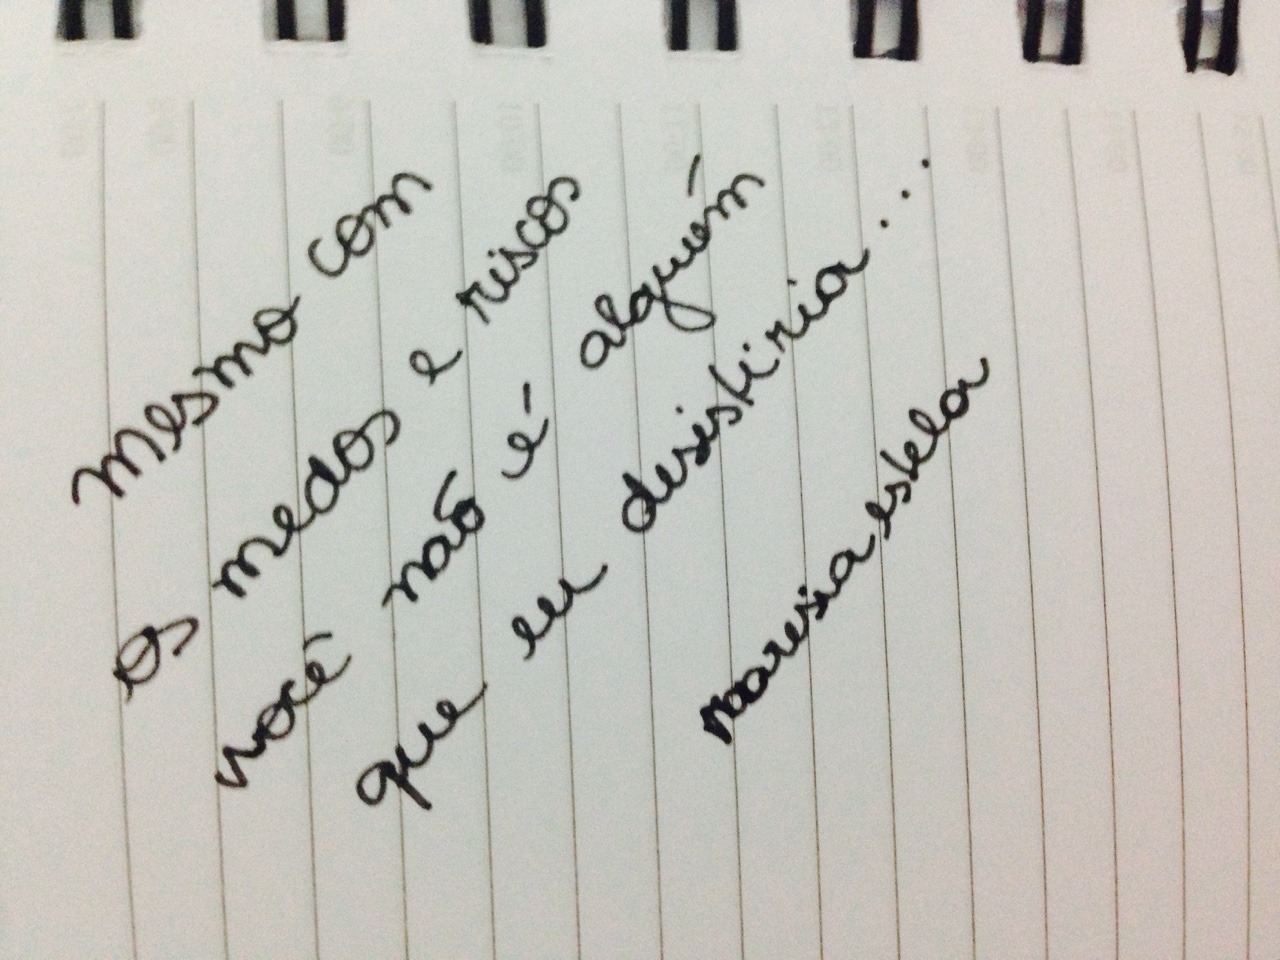 Mesmo com
os medos e riscos
você não é alguém
que eu desistiria...
maresia estela